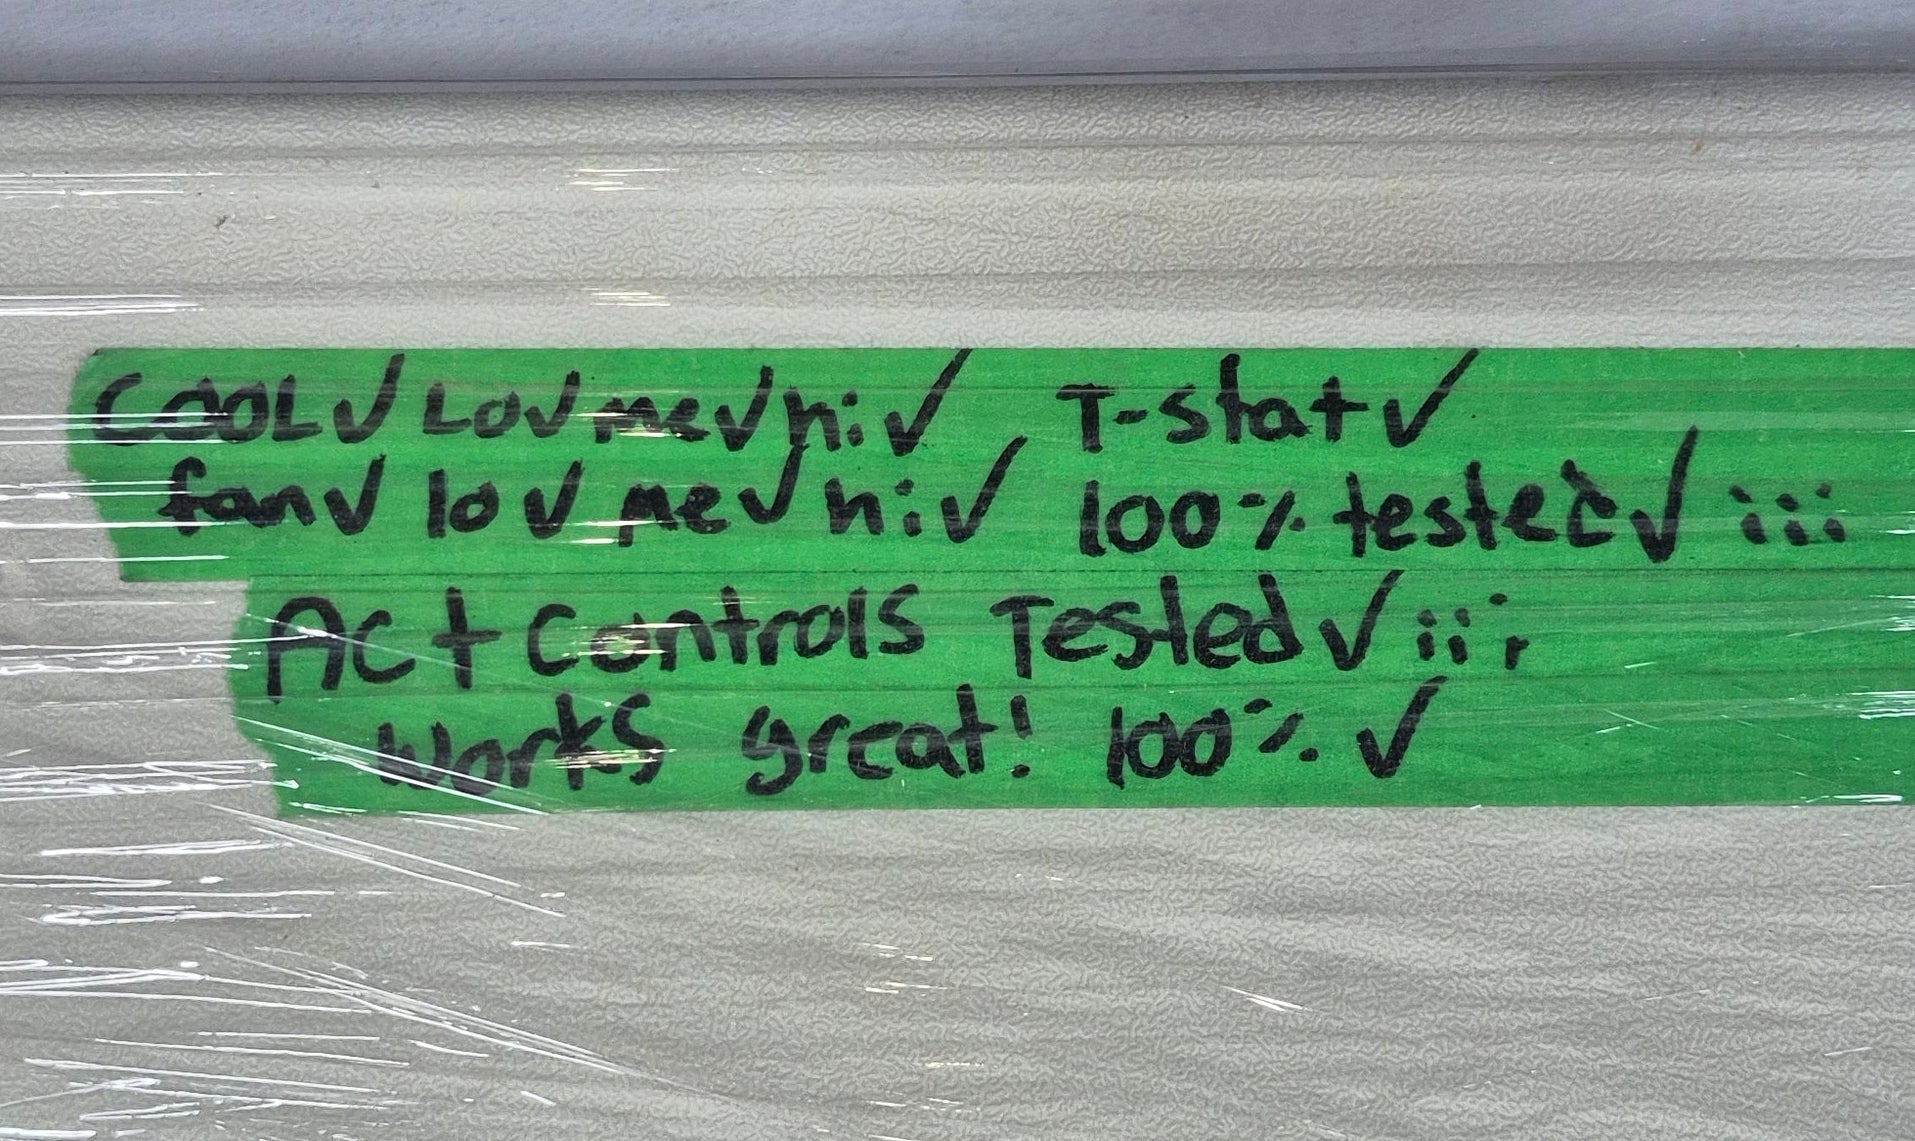 COOL✓ Lo✓ me✓ hi✓ T-stat✓
fan✓ lo✓ me✓ hi✓ 100% tested✓ iii
AC + Controls Tested✓ iii
Works great! 100% ✓